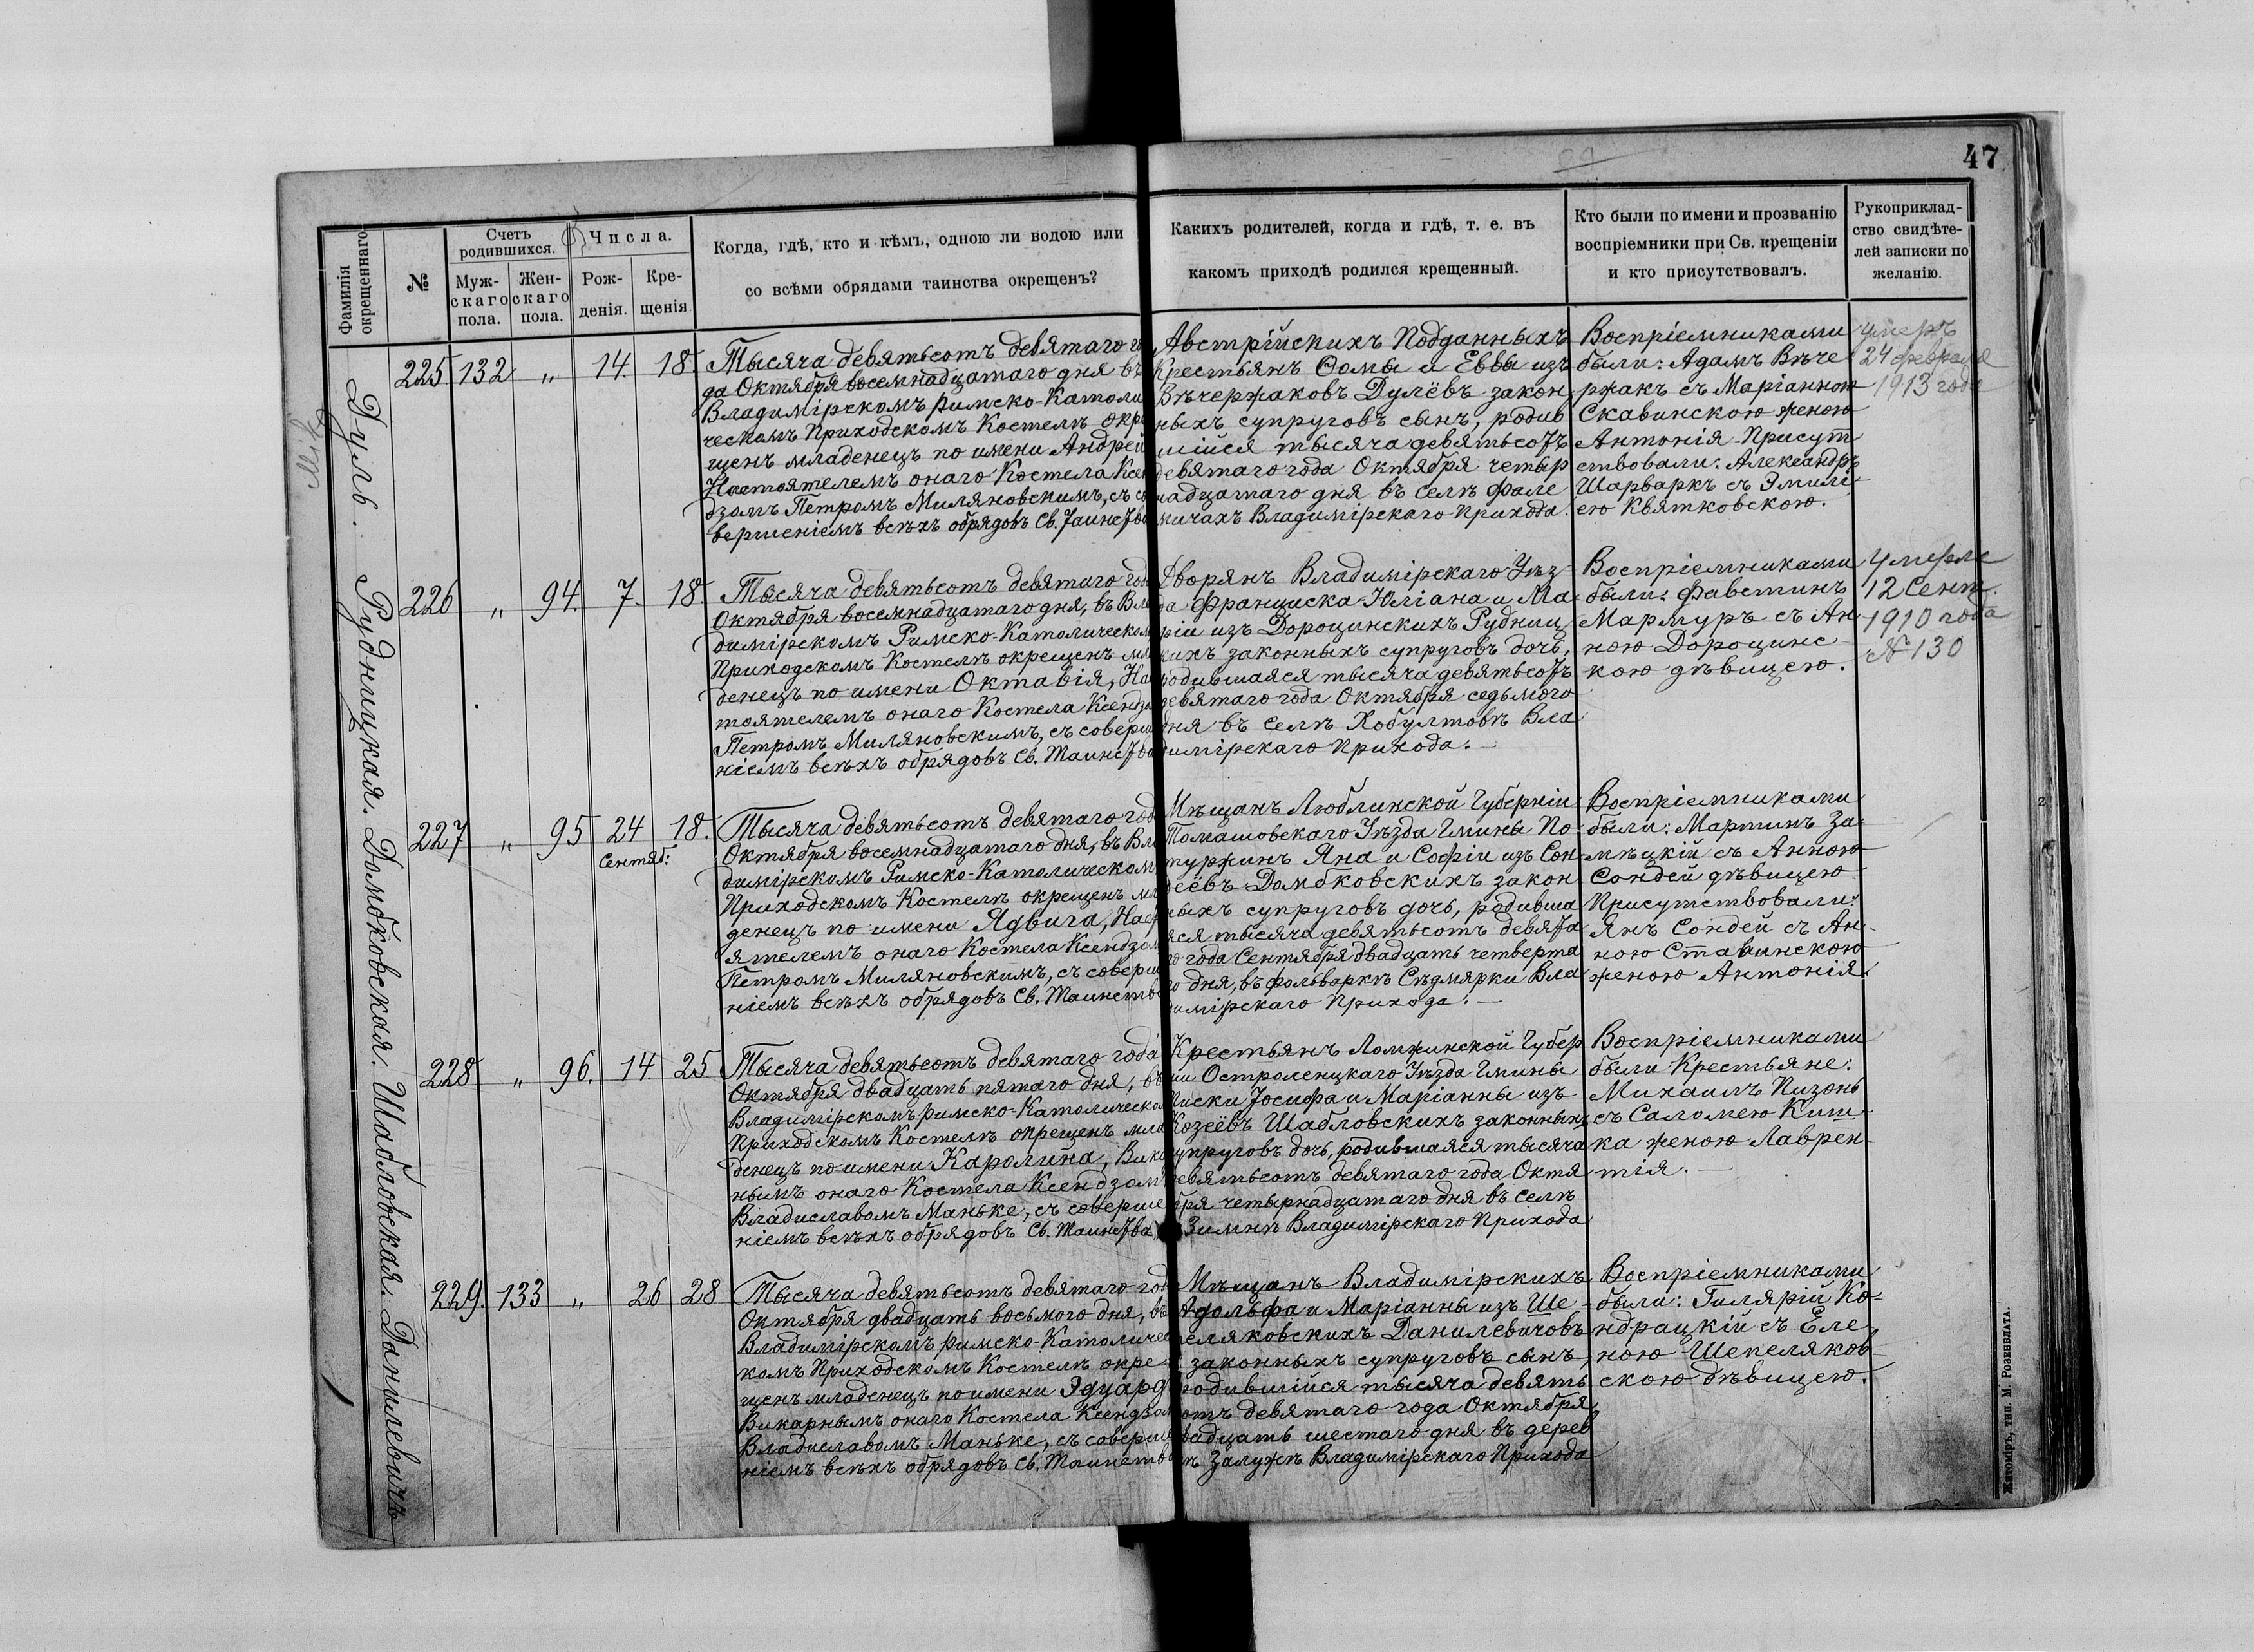 47
Фамилія
окрещеннаго
№
Счетъ
родившихся.
Муж-
скаго
пола.
Жен-
скаго
пола.
Числа.
Рож-
денія.
Кре-
щенія.
Когда, гдѣ, кто и кѣмъ, одною ли водою или
со всѣми обрядами таинства окрещенъ?
Какихъ родителей, когда и гдѣ, т. е. въ
какомъ приходѣ родился крещенный.
Кто были по имени и прозванію
воспріемники при Св. крещеніи
и кто присутствовалъ.
Рукоприклад-
ство свидѣте-
лей записки по
желанію.
Дуль.
225 132 " 14. 18.
Тысяча девятьсотъ девятаго го
да Октября восемнадцатаго дня въ
Владимірскомъ Римско-Католи
ческомъ Приходскомъ Костелѣ окре
щенъ младенецъ по имени Андрей
Настоятелемъ онаго Костела Ксен
дзомъ Петромъ Миляновскимъ, съ со
вершеніемъ всѣхъ обрядовъ Св. Таинства
Австрійскихъ Подданныхъ
Крестьянъ Ѳомы и Еввы изъ
Вѣчержаковъ Дулёвъ закон
ныхъ супруговъ сынъ, родив
шійся тысяча девятьсотъ
девятаго года Октября четыр
надцатаго дня въ селѣ Фале
мичахъ Владимірскаго Прихода.
Воспріемниками
были: Адамъ Вѣче
ржакъ съ Маріанною
Скавинскою женою
Антонія. Присут
ствовали: Александръ
Шарваркъ съ Эмилі-
ею Квятковскою.
умеръ
24 февраля
1913 года
Рудницкая.
226 " 94. 7. 18.
Тысяча девятьсотъ девятаго года
Октября восемнадцатаго дня, въ Вла
димірскомъ Римско-Католическомъ
Приходскомъ Костелѣ окрещенъ мла
денецъ по имени Октавія, Нас
тоятелемъ онаго Костела Ксендзо
Петромъ Миляновскимъ, съ соверше
ніемъ всѣхъ обрядовъ Св. Таинства
Дворянъ Владимірскаго Уѣз-
да Франциска-Юліана и Ма-
ріи изъ Дороцинскихъ Рудниц
кихъ законныхъ супруговъ дочь,
родившаяся тысяча девятьсотъ
девятаго года Октября седьмого
дня въ селѣ Хобултовѣ Вла
димірскаго Прихода.
Воспріемниками
были: Фавстинъ
Мармуръ съ Ан-
ною Дороцинс-
кою дѣвицею.
Умерла
12 Сент.
1910 года
№ 130
Домбковская.
227 " 95 24 18.
Сентяб:
Тысяча девятьсотъ девятаго года
Октября восемнадцатаго дня, въ Вла
димірскомъ Римско-Католическомъ
Приходскомъ Костелѣ окрещенъ мла
денецъ по имени Ядвига, Насто
ятелемъ онаго Костела Ксендзом
Петромъ Миляновскимъ, съ соверше
ніемъ всѣхъ обрядовъ Св. Таинства
Мѣщанъ Люблинской Губерніи
Томашовскаго Уѣзда Гмины По-
туржинъ Яна и Софіи изъ Сон-
деёвъ Домбковскихъ закон
ныхъ супруговъ дочь, родивша
яся тысяча девятьсотъ девята
го года Сентября двадцать четверта
го дня, въ фольваркѣ Сѣдмярки Вла
димірскаго Прихода.
Воспріемниками
были: Мартинъ За-
мѣцкій съ Анною
Сондей дѣвицею
Присутствовали:
Янъ Сондей съ Ан-
ною Ставинскою
женою Антонія.
Шабловская.
228 " 96. 14. 25
Тысяча девятьсотъ девятаго года
Октября двадцать пятаго дня, въ
Владимірскомъ Римско-Католическом
Приходскомъ Костелѣ окрещенъ мла
денецъ по имени Каролина, Вика
нымъ онаго Костела Ксендзомъ
Владиславомъ Маньке, съ соверше
ніемъ всѣхъ обрядовъ Св. Таинства
Крестьянъ Ломжинской Губер
ніи Остроленцкаго Уѣзда Гмины
Писки Іосифа и Маріанны изъ
Козеёвъ Шабловскихъ законныхъ
супруговъ дочь, родившаяся тысяча
девятьсотъ девятаго года Октя
бря четырнадцатаго дня въ селѣ
Зимнѣ Владимірскаго Прихода
Воспріемниками
были Крестьяне:
Михаилъ Пизонь
съ Саломею Кит-
ка женою Лаврен-
тія.
Данилевичъ
229. 133 " 26 28
Тысяча девятьсотъ девятаго года
Октября двадцать восьмого дня, въ
Владимірскомъ Римско-Католичес
комъ Приходскомъ Костелѣ окре
щенъ младенецъ по имени Эдуардъ
Викарнымъ онаго Костела Ксендзом
Владиславомъ Маньке, съ соверше
ніемъ всѣхъ обрядовъ Св. Таинства
Мѣщанъ Владимірскихъ
Адольфа и Маріанны изъ Ше-
пеляковскихъ Данилевичовъ
законныхъ супруговъ сынъ,
родившійся тысяча девять
сотъ девятаго года Октября
двадцать шестаго дня въ дерев
нѣ Залужѣ Владимірскаго Прихода
Воспріемниками
были: Гилярій Ко-
ндрацкій съ Еле
ною Шепеляков-
скою дѣвицею.
Житоміръ, тип. М. Розенблата.